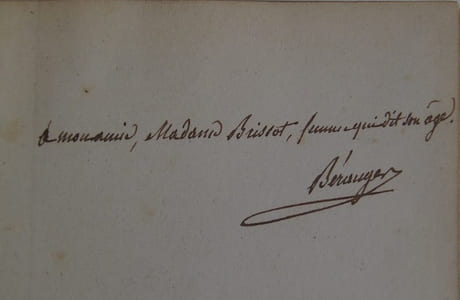 à mon amie, Madame Brissot, femme qui dit son âge.
Béranger